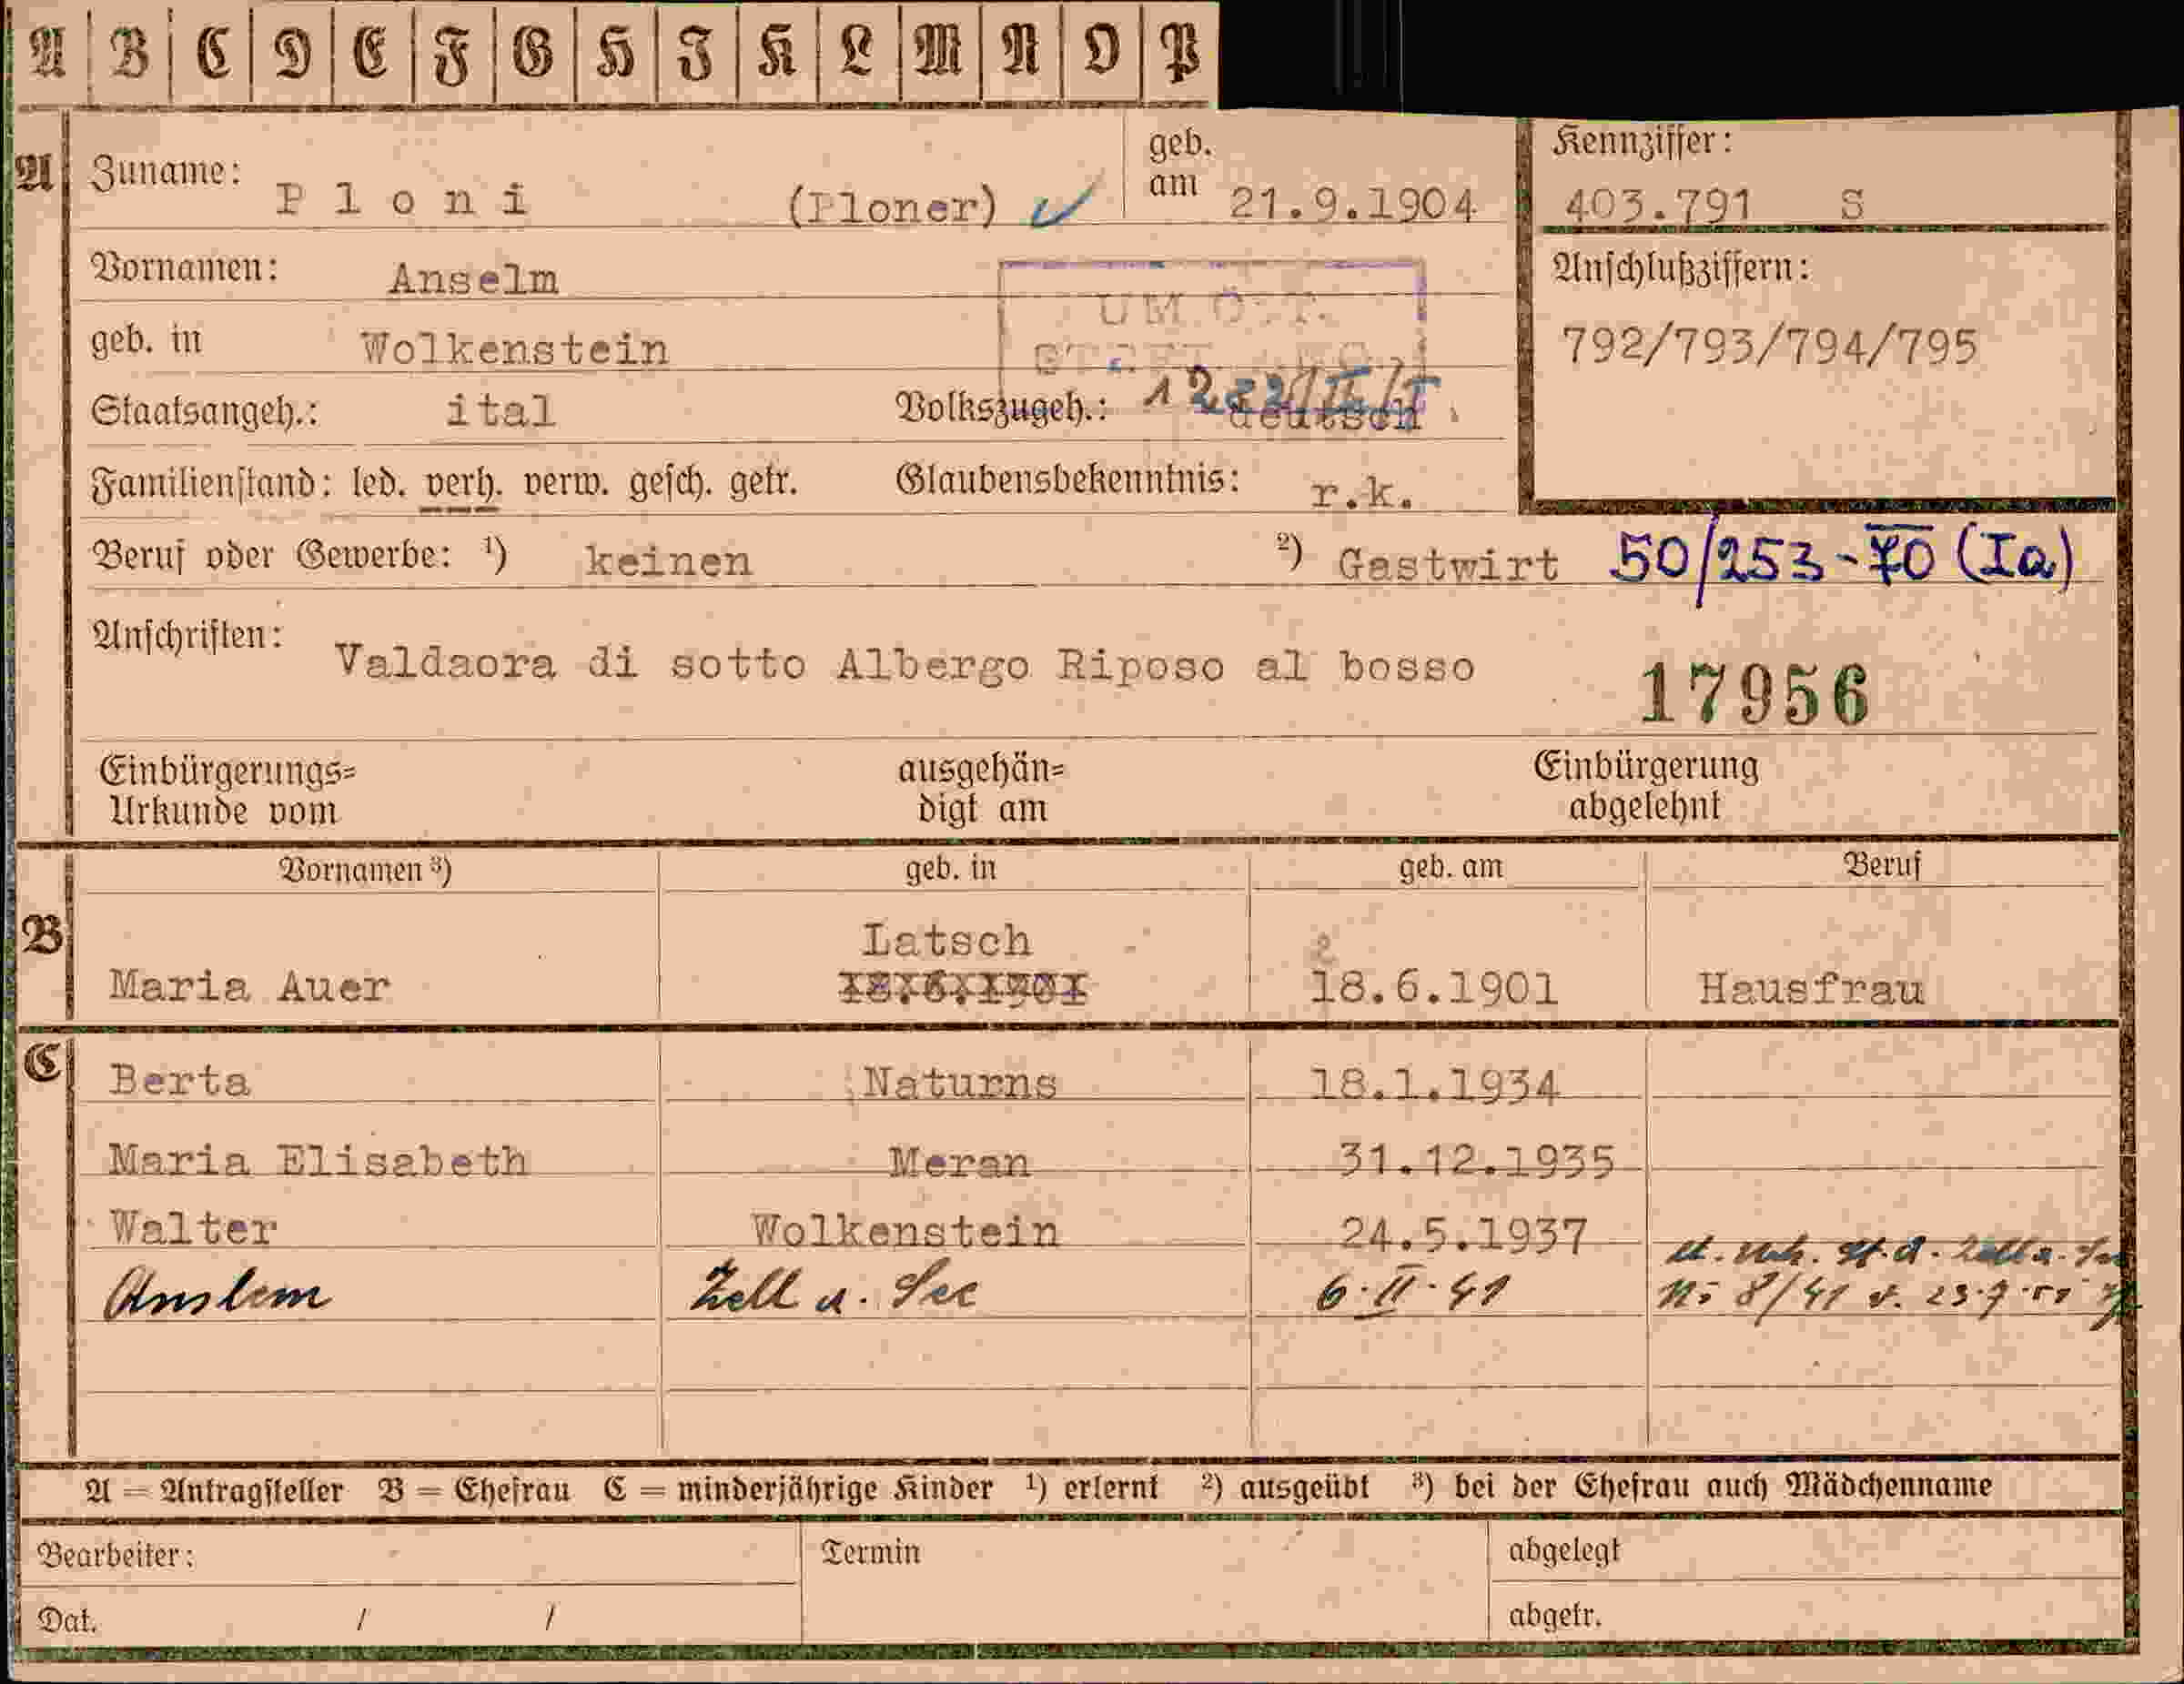 A B C D E F G H J K L M N O P
A Zuname: Ploni (Ploner) geb. am 21.9.1904 Kennziffer: 403.791 S
Vornamen: Anselm Anschlußziffern:
geb. in Wolkenstein 792/793/794/795
Staatsangeh.: ital Volkszugeh.: deutsch
Familienstand: led. verh. verw. gesch. getr. Glaubensbekenntnis: r.k.
Beruf oder Gewerbe: ¹) keinen ²) Gastwirt 50/253-70 (Ia)
Anschriften: Valdaora di sotto Albergo Riposo al bosso 17956
Einbürgerungs= ausgehän= Einbürgerung
Urkunde vom digt am abgelehnt
Vornamen ³) geb. in geb. am Beruf
B Latsch
Maria Auer 18.6.1901 18.6.1901 Hausfrau
C Berta Naturns 18.1.1934
Maria Elisabeth Meran 31.12.1935
Walter Wolkenstein 24.5.1937
Anslem Zell a. See 6.II.41 8/41
A = Antragsteller B = Ehefrau C = minderjährige Kinder ¹) erlernt ²) ausgeübt ³) bei der Ehefrau auch Mädchenname
Bearbeiter: Termin abgelegt
Dat. / / abgetr.